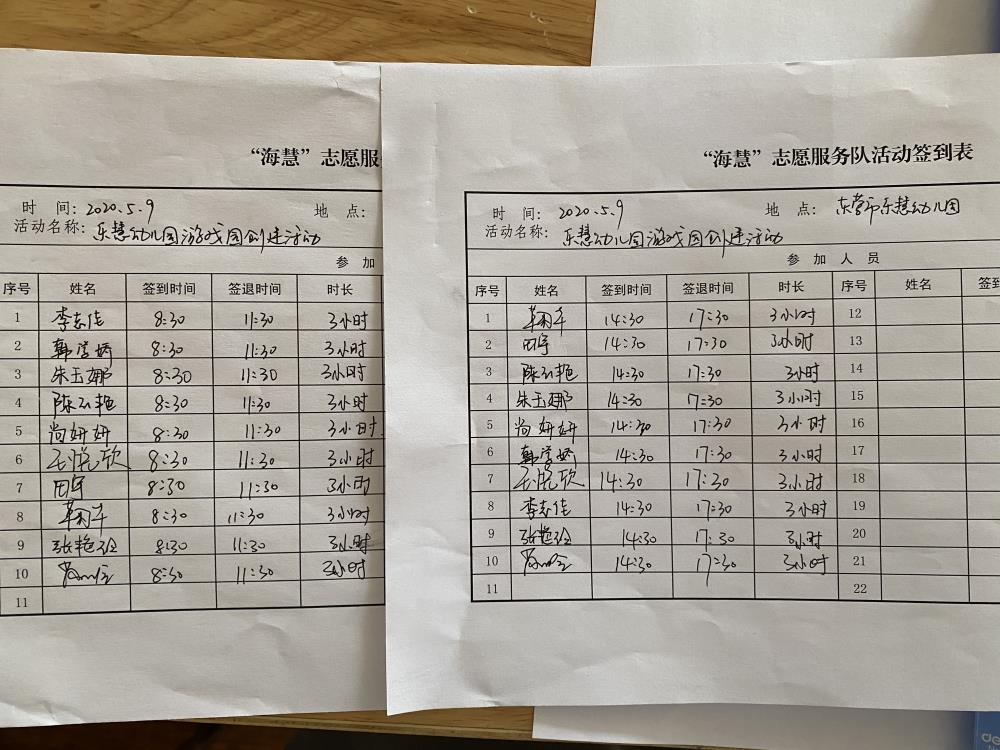 “海慧”志愿服
时 间: 2020.5.9 地 点:
活动名称: 乐慧幼儿园游戏园创建活动
参 加
序号 姓名 签到时间 签退时间 时长
1 李志佳 8:30 11:30 3小时
2 韩学娇 8:30 11:30 3小时
3 朱玉娜 8:30 11:30 3小时
4 陈云艳 8:30 11:30 3小时
5 尚妍妍 8:30 11:30 3小时
6 王悦欣 8:30 11:30 3小时
7 田宇 8:30 11:30 3小时
8 8:30 11:30 3小时
9 张艳 8:30 11:30 3小时
10 8:30 11:30 3小时
11
“海慧”志愿服务队活动签到表
时 间: 2020.5.9 地 点: 东营市乐慧幼儿园
活动名称: 乐慧幼儿园游戏园创建活动
参 加 人 员
序号 姓名 签到时间 签退时间 时长 序号 姓名 签到
1 14:30 17:30 3小时 12
2 田宇 14:30 17:30 3小时 13
3 陈云艳 14:30 17:30 3小时 14
4 朱玉娜 14:30 17:30 3小时 15
5 尚妍妍 14:30 17:30 3小时 16
6 韩学娇 14:30 17:30 3小时 17
7 王悦欣 14:30 17:30 3小时 18
8 李志佳 14:30 17:30 3小时 19
9 张艳 14:30 17:30 3小时 20
10 14:30 17:30 3小时 21
11 22
de